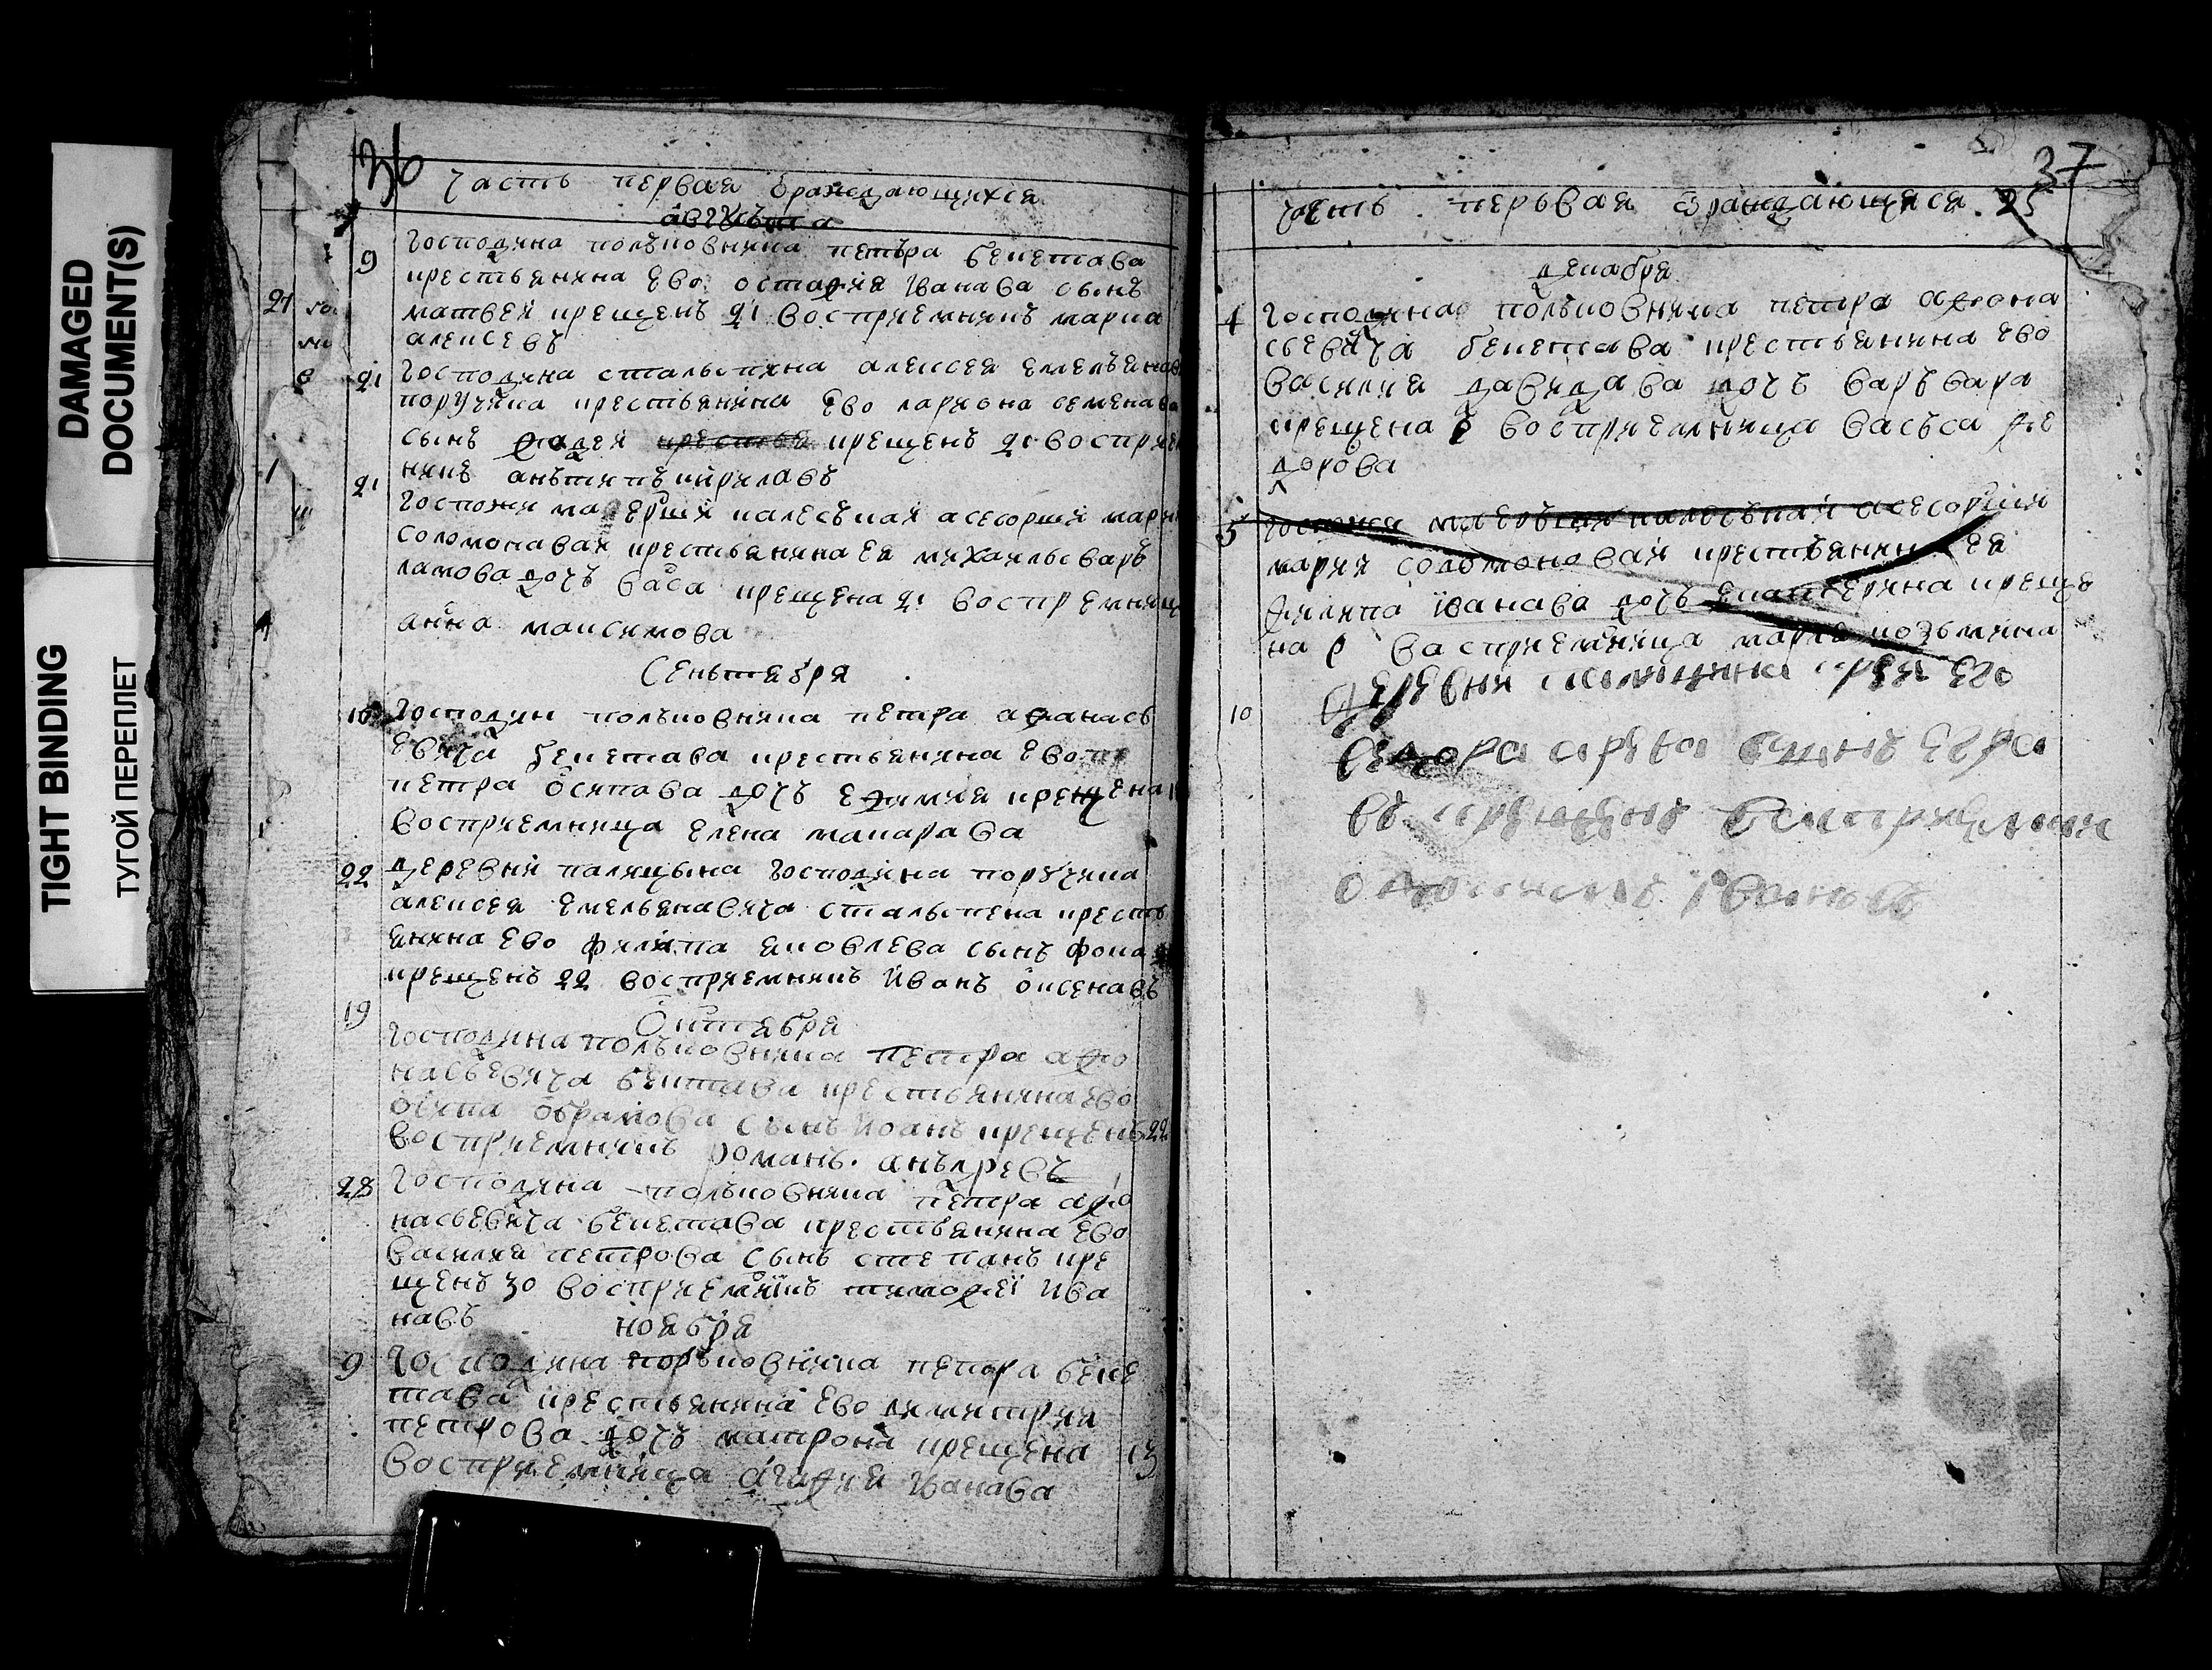 DAMAGED
DOCUMENT(S)
TIGHT BINDING
ТУГОЙ ПЕРЕПЛЕТ
36
часть первая ѡраждающихся
августа
9 господина полъковника петъра бекетава
крестьянина ево остафия Iванава сынъ
матвей крещенъ 21 восприемникъ марка
алексевъ
21 господина стальыпина алексея емельянав
поручика крестьянина ево лариона семенава
сынъ фадей крещенъ 21 восприем
никъ анътипъ кириллавъ
21 госпожи маерши калесъкай асесорши марьи
соломонавай крестьянина ея михаильы варъ
ламова дочъ васа крещена 21 восприемница
анна максимова
Сеньтября
16 господин полъковника петра афанась
евича бекетава крестьянина ево
петра осипава дочъ ефимия крещена
восприемница елена макарава
22 деревни палицына господина поручика
алексея емельянавича стальыпена кресть
янина ево филипа яковлева сынъ фока
крещенъ 22 восприемникъ иванъ оксенавъ
Октября
19 господина полъковника петра афо
насьевича бекетава крестьянина ево
осипа обрамова сынъ иоанъ крещенъ 22
восприемникъ романъ анъдревъ
28 господина полъковника петра афо
насьевича бекетава крестьянина ево
василия петрова сынъ степанъ кре
щенъ 30 восприемникъ тимофеi ива
навъ
ноября
9 господина полъковника петра беке
тава крестьянина ево димитрия
петрова дочъ матрона крещена 13
восприемница агафия Iванава
37
часть перьвая ѡраждающихся 25
декабря
4 господина полъковника петра афона
сьевича бекетава крестьянина ево
василия давидава дочъ варъвара
крещена восприемница васъса фе
дорова
5 госпожи маеръши калесъкай асесорши
марии соломоновай крестьянин ея
филипа Iванава дочъ екатерина креще
на восприемница марья козьмина
10 деревни